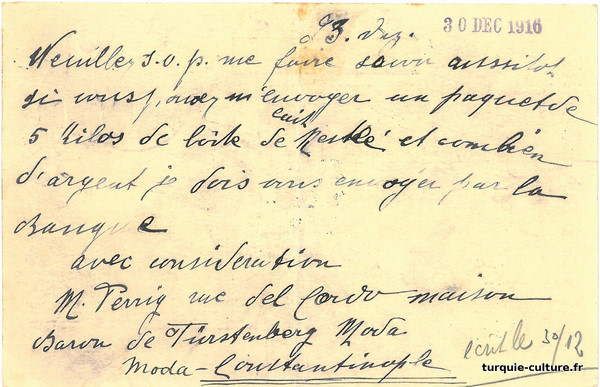 30 DEC 1916
23. Dez.
Veuillez s.v.p. me faire savoir aussitot
si vous pouvez m'envoyer un paquet de
5 Kilos de boîte de lait Nestlé et combien
d'argent je dois vous envoyer par la
Banque
avec consideration
M. Perrig rue del Cordo maison
Baron de Fürstenberg Moda
Moda-Constantinople
ecrit le 30/12
turquie-culture.fr